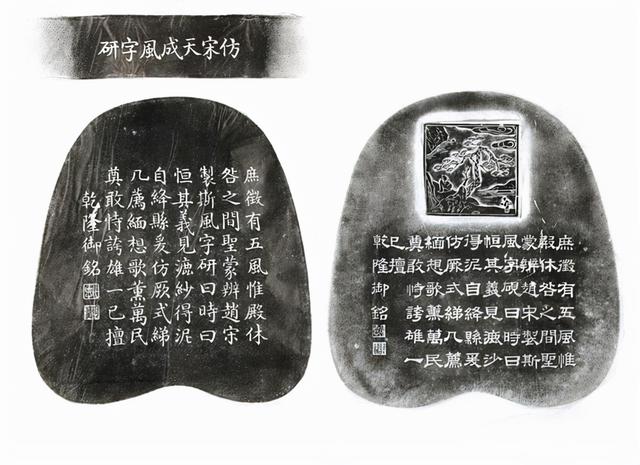 仿宋天成風字研
庶徵有五風惟殿休
咎之間聖蒙辨趙宋
製斯風字研曰時曰
恒其義見漉紗得泥
自絳縣爰仿厥式綈
几薦緬想歌薰萬民
奠敢恃誇雄一已擅
乾隆御銘
庶徵有五風惟
殿休咎之間聖
蒙辨趙宋製斯
風字硯曰時曰
恒其義見漉沙
得泥自絳縣爰
仿厥式綈几薦
緬想歌薰萬民
奠敢恃誇雄一
已擅
乾隆御銘